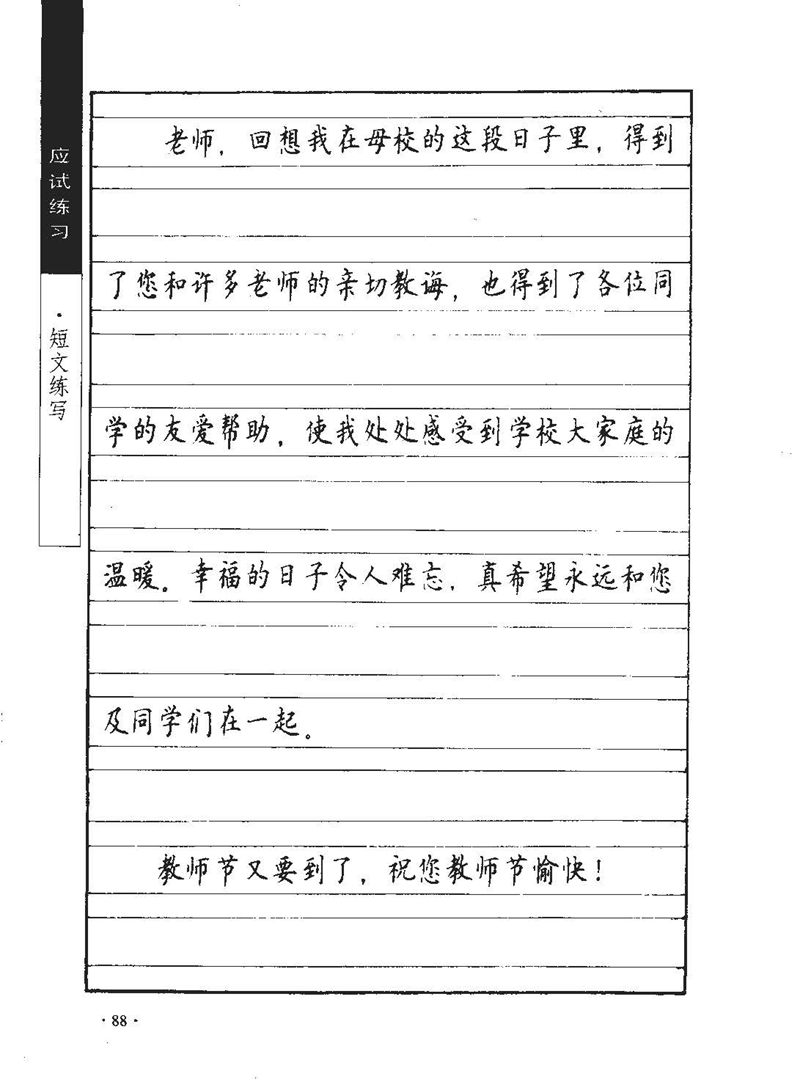 应试练习
·短文练写
老师，回想我在母校的这段日子里，得到
了您和许多老师的亲切教诲，也得到了各位同
学的友爱帮助，使我处处感受到学校大家庭的
温暖。幸福的日子令人难忘，真希望永远和您
及同学们在一起。
教师节又要到了，祝您教师节愉快！
·88·